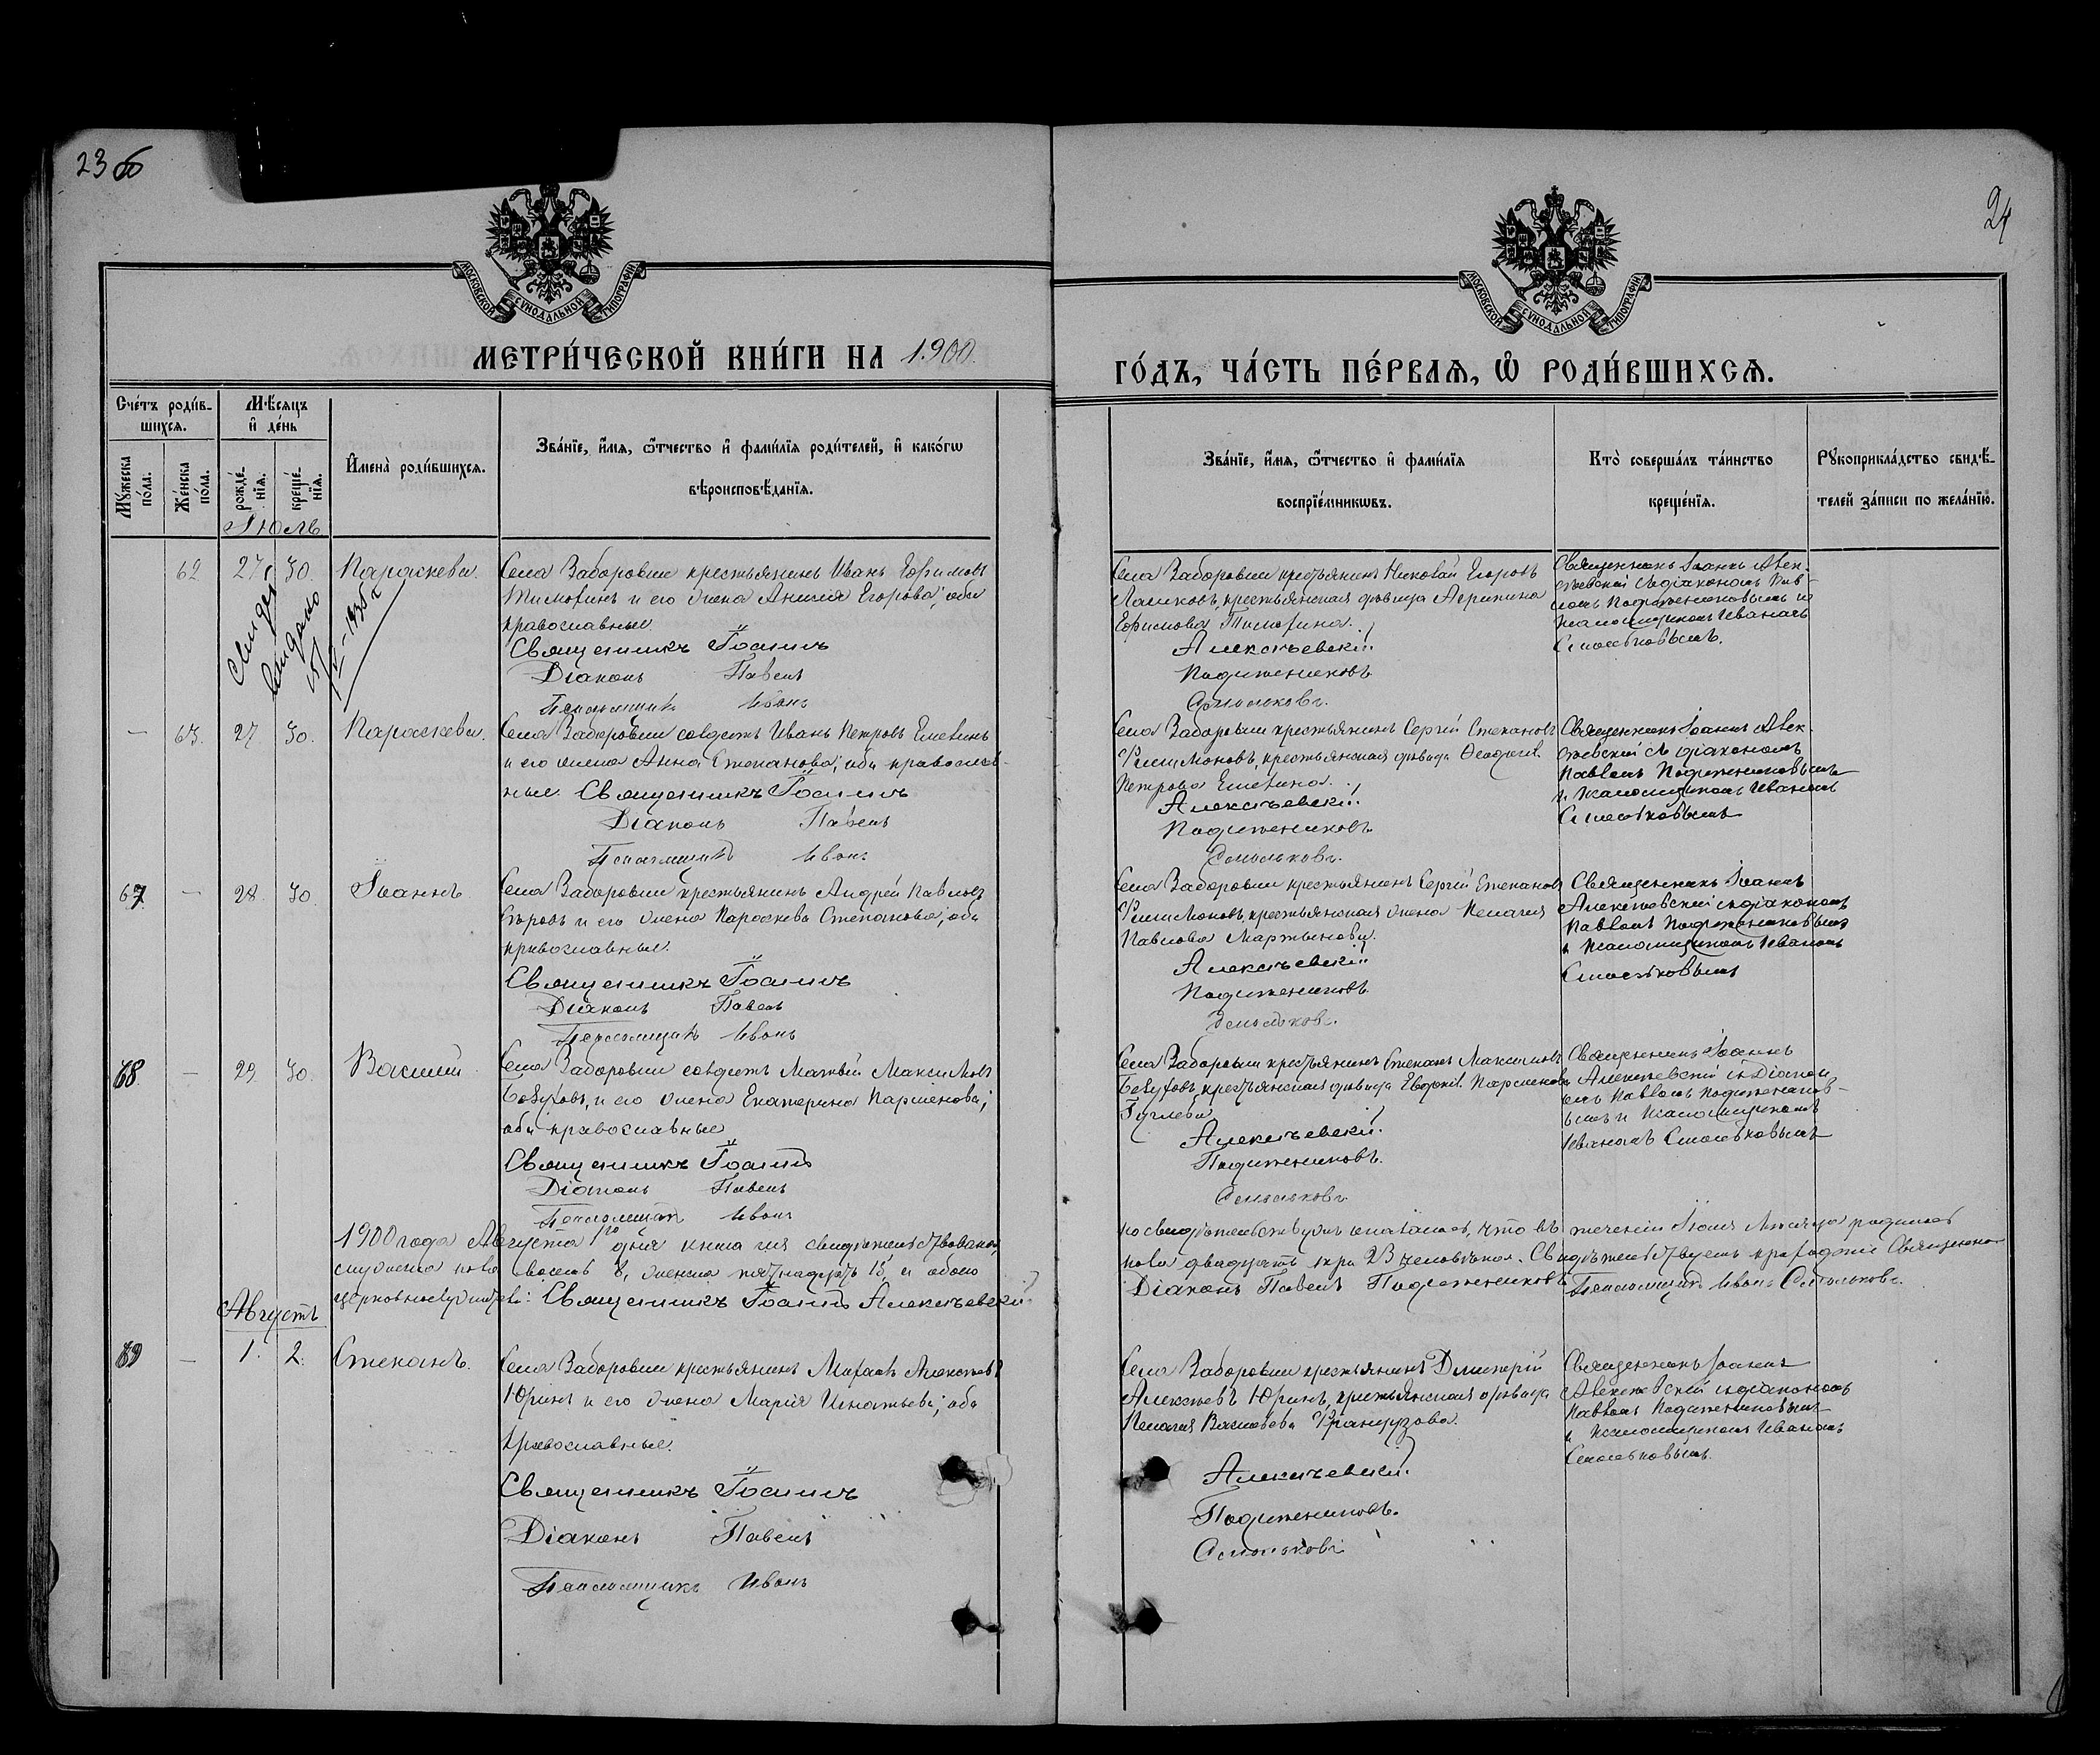 23 об
24
МОСКОВСКОЙ СѴНОДАЛЬНОЙ ТИПОГРАФІИ
МОСКОВСКОЙ СѴНОДАЛЬНОЙ ТИПОГРАФІИ
МЕТРИ́ЧЕСКОЙ КНИ́ГИ НА 1900
ГО́ДЪ, ЧА́СТЬ ПЕ́РВАѦ, Ѡ РОДИ́ВШИХСѦ.
Сче́тъ роди́в-
шихсѧ.
Мꙋ́жеска по́ла.
Же́нска по́ла.
Мѣ́сѧцъ и де́нь
рожде́-нїѧ.
креще́-нїѧ.
И҆мена̀ роди́вшихсѧ.
Зва́нїе, и҆́мѧ, ѻ҆́тчество и҆ фами́лїѧ роди́телей, и҆ како́гѡ
вѣроисповѣ́данїѧ.
Зва́нїе, и҆́мѧ, ѻ҆́тчество и҆ фами́лїѧ
воспрїе́мникѡвъ.
Кто̀ соверша́лъ та́инство
креще́нїѧ.
Рꙋкоприкла́дство свидѣ́-
телей за́писи по жела́нїю.
Іюль
62 27 30. Параскева.
Села Заборовки крестьянинъ Иванъ Ефимовъ
Тимофинъ и его жена Анисія Егорова; оба
православные.
Священникъ Іоаннъ
Діаконъ Павелъ
Псаломщикъ Иванъ
Села Заборовки крестьянинъ Николай Егоровъ
крестьянская дѣвица Агрипина
Ефимова Тимофина.
Алексѣевскій
Подлипенниковъ
Смольковъ.
Священникъ Іоаннъ Алек-
сѣевскій съ діакономъ Пав-
ломъ и
псаломщикомъ Иваномъ
Смольковымъ.
— 63. 27 30. Параскева.
Села Заборовки солдатъ Иванъ Петровъ Емелинъ
и его жена Анна Степанова; оба православ-
ные. Священникъ Іоаннъ
Діаконъ Павелъ
Псаломщикъ Иванъ
Села Заборовки крестьянинъ Сергій Степановъ
Филимоновъ, крестьянская дѣвица Ѳеодосія
Петрова Емелина.
Алексѣевскій
Смольковъ.
Священникъ Іоаннъ Алек-
сѣевскій съ діакономъ
Павломъ
и псаломщикомъ Иваномъ
Смольковымъ
67. — 28. 30. Іоаннъ
Села Заборовки крестьянинъ Андрей Павловъ
Егоровъ и его жена Параскева Степанова; оба
православные.
Священникъ Іоаннъ
Діаконъ Павелъ
Псаломщикъ Иванъ
Села Заборовки крестьянинъ Сергій Степановъ
Филимоновъ, крестьянская жена Пелагія
Павлова Мартынова.
Алексѣевскій
Смольковъ.
Священникъ Іоаннъ
Алексѣевскій съ діакономъ
Павломъ
и псаломщикомъ Иваномъ
Смольковымъ
68 — 29. 30. Василій
Села Заборовки солдатъ Матвѣй Максимовъ
и его жена Екатерина Парменова;
оба православные
Священникъ Іоаннъ
Діаконъ Павелъ
Псаломщикъ Иванъ
Села Заборовки крестьянинъ Степанъ Максимовъ
крестьянская дѣвица Евдокія Парменова
Алексѣевскій.
Смольковъ
Священникъ Іоаннъ
Алексѣевскій съ Діакон-
омъ Павломъ
и псаломщикомъ
Иваномъ Смольковымъ
1900 года Августа 1го дня книга сія свидѣтельствована,
церковнослужители: Священникъ Іоаннъ Алексѣевскій
по свидѣтельству оказалось, что въ теченіи Іюля мѣсяца родилось
Діаконъ Павелъ Псаломщикъ Иванъ Смольковъ.
Августъ
69 — 1. 2. Степанъ.
Села Заборовки крестьянинъ Михаилъ Алексѣевъ
Юринъ и его жена Марія Игнатьева; оба
православные.
Священникъ Іоаннъ
Діаконъ Павелъ
Псаломщикъ Иванъ
Села Заборовки крестьянинъ Димитрій
Алексѣевъ Юринъ, крестьянская дѣвица
Пелагія Васильева Французова.
Алексѣевскій.
Смольковъ
Священникъ Іоаннъ
Алексѣевскій съ діакономъ
Павломъ
и псаломщикомъ Иваномъ
Смольковымъ.